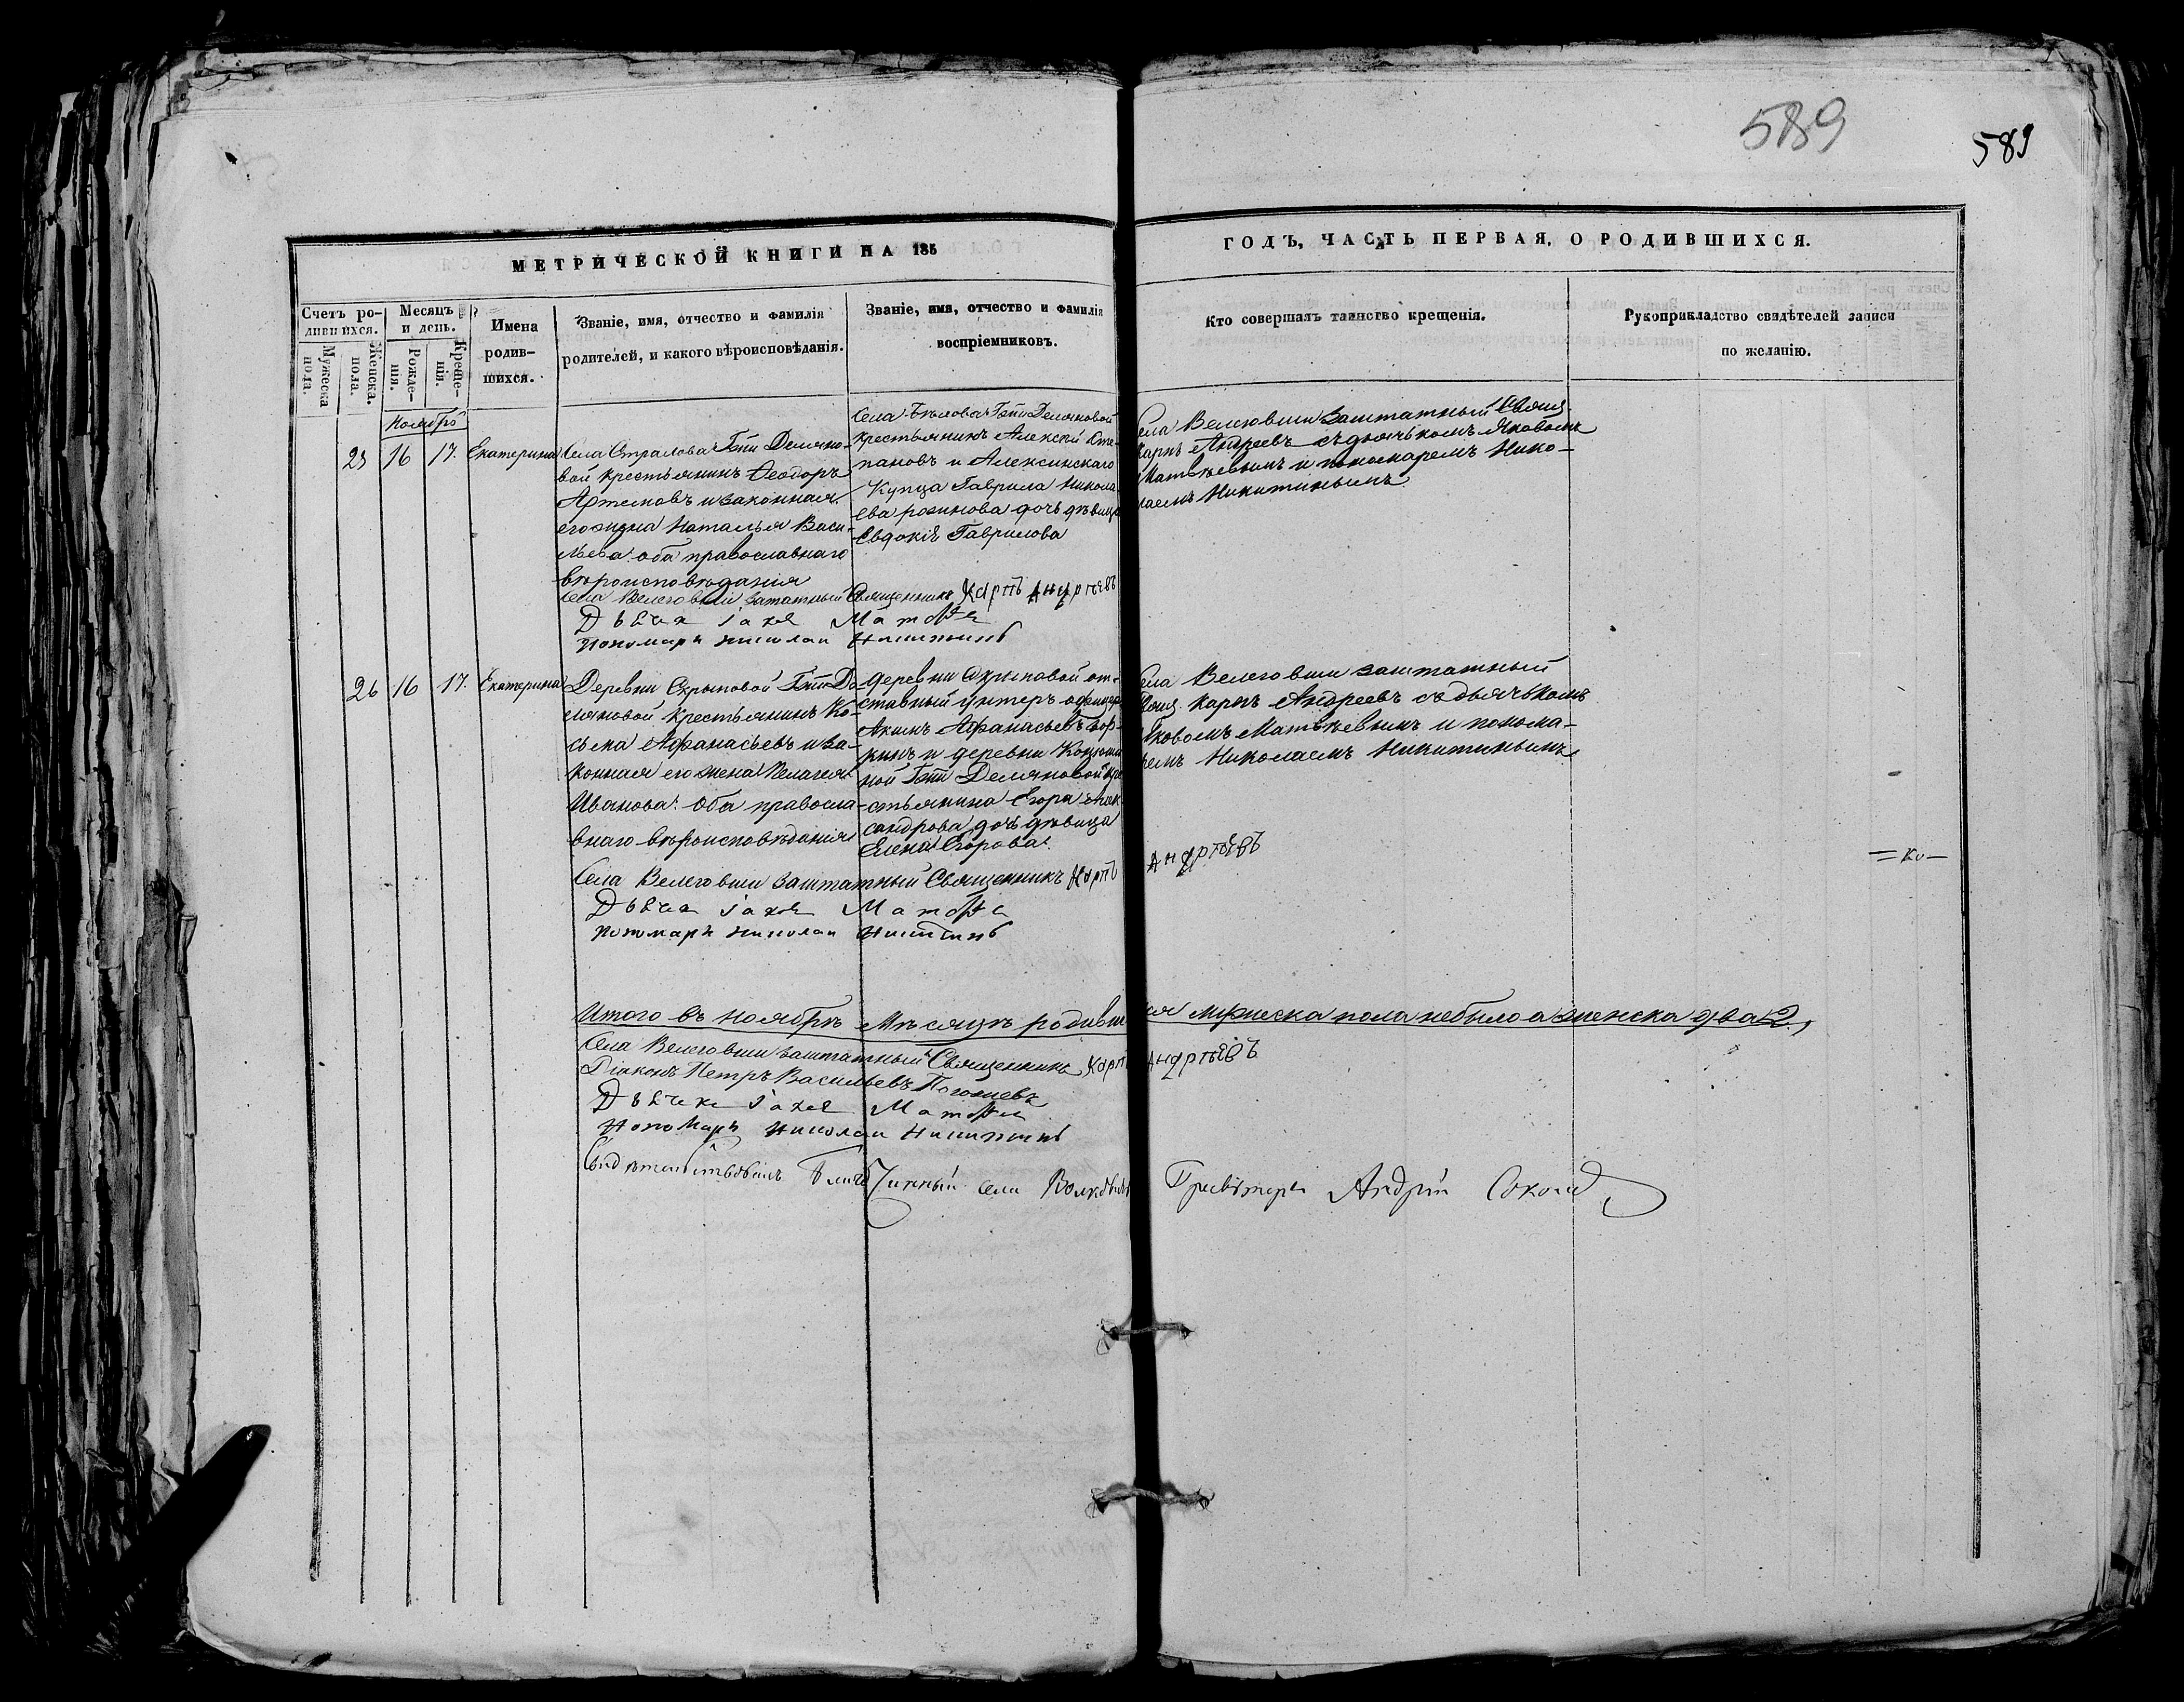 589
589
МЕТРИЧЕСКОЙ КНИГИ НА 185
ГОДЪ, ЧАСТЬ ПЕРВАЯ, О РОДИВШИХСЯ.
Счетъ ро-
дившихся.
Мужеска
пола.
Женска.
пола.
Месяцъ
и день.
Рожде-
нія.
Креще-
нія.
Имена
родив-
шихся.
Званіе, имя, отчество и фамилія
родителей, и какого вѣроисповѣданія.
Званіе, имя, отчество и фамилія
воспріемниковъ.
Кто совершалъ таинство крещенія.
Рукоприкладство свидѣтелей записи
по желанію.
Ноябрь
25 16 17. Екатерина
Села Страхова Гжи Деляно-
вой крестьянинъ Ѳеодоръ
Артемовъ и законная
его жена Наталья Васи-
льева: оба православнаго
вѣроисповѣданія
Села Бѣлова Гжи Деляновой
крестьянинъ Алексѣй Сте-
пановъ и Алексинскаго
купца Гаврила Никола-
ева дочь дѣвица
Евдокія Гаврилова
Села Велеговши Заштатный Свящ.
Карпъ Андреевъ съ дьячькомъ Яковомъ
Матвѣевымъ и пономаремъ Нико-
лаемъ Никитинымъ
Села Велеговши Заштатный Священникъ Карпъ Андрѣевъ
Дьячек Яков Матвѣ
Пономарь Николаи Никитинъ
26 16 17. Екатерина
Деревни Скрыповой Гжи Де-
ляновой крестьянинъ Ко-
сьма Афанасьевъ и за-
конная его жена Пелагея
Иванова: Оба правосла-
внаго вѣроисповѣданія
деревни Скрыповой от-
ставный унтеръ офицеръ
Акимъ Афанасьевъ
и деревни
Гжи Деляновой кре-
стьянина Егора Алек-
сандрова дочь дѣвица
Елена Егорова.
Села Велеговши заштатный
Свящ. Карпъ Андреевъ съ дьячькомъ
Яковомъ Матвѣевымъ и понома-
ремъ Николаемъ Никитинымъ
Села Велеговши Заштатный Священникъ Карпъ Андрѣевъ
Дьячек Яков Матвѣ
Пономарь Николаи Никитинъ
Итого въ ноябрѣ Мѣсяцѣ родившихся мужеска пола небыло а женска два 2.
Села Велеговши заштатный Священникъ Карпъ Андрѣевъ
Діаконъ Петръ Васильевъ
Дьячек Яков Матвѣ
Пономарь Николаи Никитинъ
Свидѣтельствовалъ Благочинный села Пресвитеръ Андрей